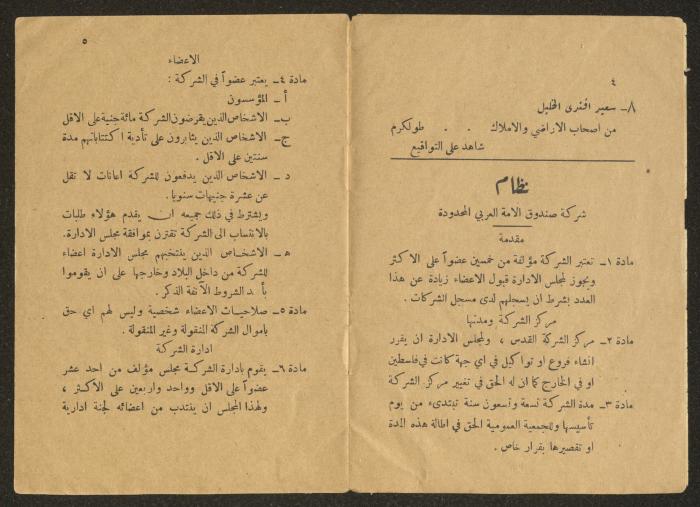 ٤
٨ـ سعيد افندي الخليل
من اصحاب الاراضي والاملاك . . طولكرم
شاهد على التواقيع
نظام
شركة صندوق الامة العربي المحدودة
مقدمة
مادة ١ـ تعتبر الشركة مؤلفة من خمسين عضواً على الاكثر
ويجوز لمجلس الادارة قبول الاعضاء زيادة عن هذا
العدد بشرط ان يسجلهم لدى مسجل الشركات .
مركز الشركة ومدتها
مادة ٢ـ مركز الشركة القدس ، ولمجلس الادارة ان يقرر
انشاء فروع او تواكيل في اي جهة كانت في فلسطين
او في الخارج كما ان له الحق في تغيير مركز الشركة
مادة ٣ـ مدة الشركة تسعة وتسعون سنة تبتدىء من يوم
تأسيسها وللجمعية العمومية الحق في اطالة هذه المدة
او تقصيرها بقرار خاص .
٥
الاعضاء
مادة ٤ـ يعتبر عضواً في الشركة :
أ ـ المؤسسون
ب ـ الاشخاص الذين يقرضون الشركة مائة جنية على الاقل
ج ـ الاشخاص الذين يثابرون على تأدية اكتتاباتهم مدة
سنتين على الاقل .
د ـ الاشخاص الذين يدفعون للشركة اعانات لا تقل
عن عشرة جنيهات سنويا .
ويشترط في ذلك جميعه ان يقدم هؤلاء طلبات
بالانتساب الى الشركة تقترن بموافقة مجلس الادارة.
هـ ـ الاشخاص الذين ينتخبهم مجلس الادارة اعضاء
للشركة من داخل البلاد وخارجها على ان يقوموا
الشروط الآنفة الذكر .
مادة ٥ـ صلاحيات الاعضاء شخصية وليس لهم اي حق
باموال الشركة المنقولة وغير المنقولة .
ادارة الشركة
مادة ٦ـ يقوم بادارة الشركة مجلس مؤلف من احد عشر
عضواً على الاقل وواحد واربعين على الاكثر ،
ولهذا المجلس ان ينتدب من اعضائه لجنة ادارية